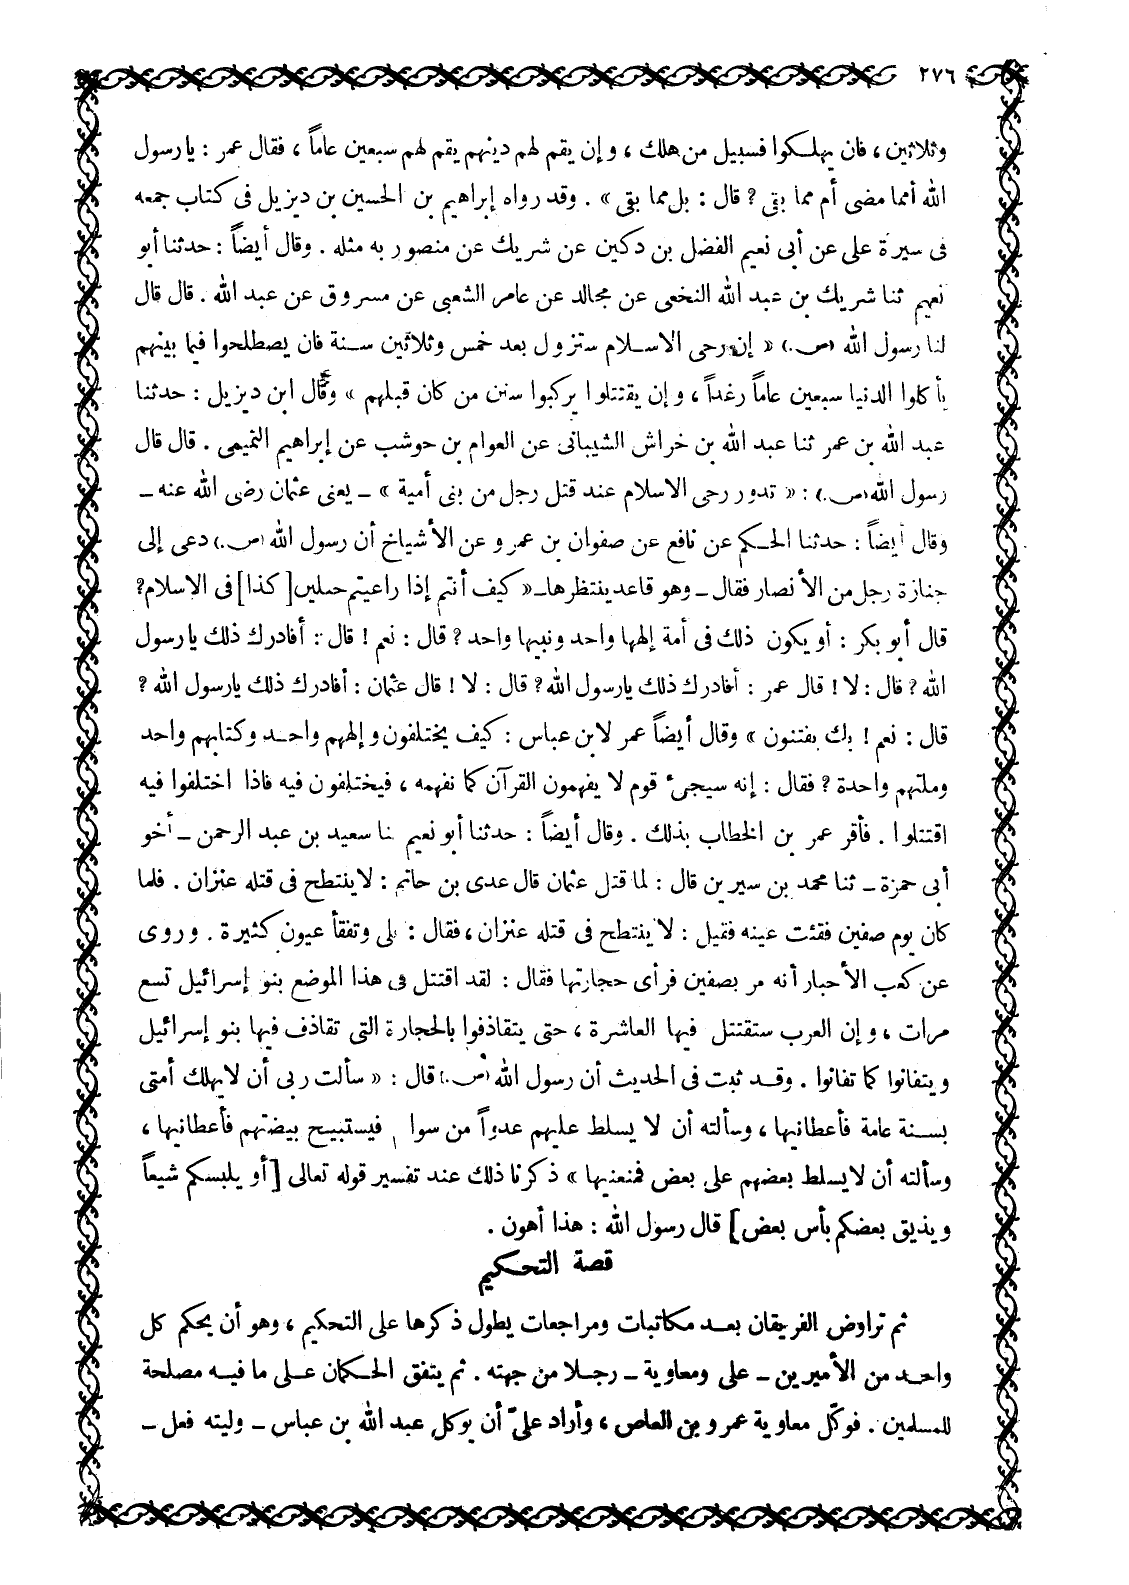 ٢٧٦
وثلاثين ، فان يهلـكوا فسبيل من هلك ، و إن يقم لهم دينهم يقم لهم سبعين عاماً ، فقال عمر : يارسول
الله أمما مضى أم مما بقى ? قال : بل مما بقى » . وقد رواه إبراهيم بن الحسين بن ديزيل فى كتاب جمعه
فى سيرة على عن أبى نعيم الفضل بن دكين عن شريك عن منصور به مثله . وقال أيضاً : حدثنا أبو
نعيم ثنا شريك بن عبد الله النخعى عن مجالد عن عامر الشعبى عن مسروق عن عبد الله . قال قال
لنا رسول الله (ص.) « إن رحى الاسـلام ستزول بعد خمس وثلاثين سـنة فان يصطلحوا فيما بينهم
يأكلوا الدنيا سبعين عاماً رغداً ، و إن يقتتلوا يركبوا سنن من كان قبلهم » وقال ابن ديزيل : حدثنا
عبد الله بن عمر ثنا عبد الله بن خراش الشيبانى عن العوام بن حوشب عن إبراهيم التميمى . قال قال
رسول الله (ص.) : « تدور رحى الاسلام عند قتل رجل من بنى أمية » ـ يعنى عثمان رضى الله عنه ـ
وقال أيضاً : حدثنا الحـكم عن نافع عن صفوان بن عمرو عن الأشياخ أن رسول الله (ص.) دعى إلى
جنازة رجل من الأنصار فقال ـ وهو قاعد ينتظرها ـ « كيف أنتم إذا راعيتم حملين [ كذا ] فى الاسلام?
قال أبو بكر : أو يكون ذلك فى أمة إلهها واحد ونبيها واحد ? قال : نعم ! قال : أفادرك ذلك يارسول
الله ? قال : لا ! قال عمر : أفادرك ذلك يارسول الله ? قال : لا ! قال عثمان : أفادرك ذلك يارسول الله ?
قال : نعم ! بك يفتنون » وقال أيضاً عمر لابن عباس : كيف يختلفون و إلههم واحـد وكتابهم واحد
وملتهم واحدة ? فقال : إنه سيجىء قوم لا يفهمون القرآن كما نفهمه ، فيختلفون فيه فاذا اختلفوا فيه
اقتتلوا . فأقر عمر بن الخطاب بذلك . وقال أيضاً : حدثنا أبو نعيم نا سعيد بن عبد الرحمن ـ أخو
أبى حمزة ـ ثنا محمد بن سيرين قال : لما قتل عثمان قال عدى بن حاتم : لا ينتطح فى قتله عنزان . فلما
كان يوم صفين فقئت عينه فقيل : لا ينتطح فى قتله عنزان ، فقال : بلى وتفقأ عيون كثيرة . وروى
عن كعب الأحبار أنه مر بصفين فرأى حجارتها فقال : لقد اقتتل فى هذا الموضع بنو إسرائيل تسع
مرات ، و إن العرب ستقتتل فيها العاشرة ، حتى يتقاذفوا بالحجارة التى تقاذف فيها بنو إسرائيل
ويتفانوا كما تفانوا . وقـد ثبت فى الحديث أن رسول الله (ص.) قال : « سألت ربى أن لا يهلك أمتى
بسـنة عامة فأعطانيها ، وسألته أن لا يسلط عليهم عدواً من سوا فيستبيح بيضتهم فأعطانيها ،
وسألته أن لا يسلط بعضهم على بعض فمنعنيها » ذكرنا ذلك عند تفسير قوله تعالى [ أو يلبسكم شيعاً
ويذيق بعضكم بأس بعض ] قال رسول الله : هذا أهون .
قصة التحـكيم
ثم تراوض الفريقان بعـد مكاتبات ومراجعات يطول ذكرها على التحكيم ، وهو أن يحكم كل
واحـد من الأميرين ـ على ومعاوية ـ رجـلا من جهته . ثم يتفق الحـكمان عـلى ما فيـه مصلحة
للمسلمين . فوكّل معاوية عمرو بن العاص ، وأراد علىّ أن يوكل عبد الله بن عباس ـ وليته فعل ـ